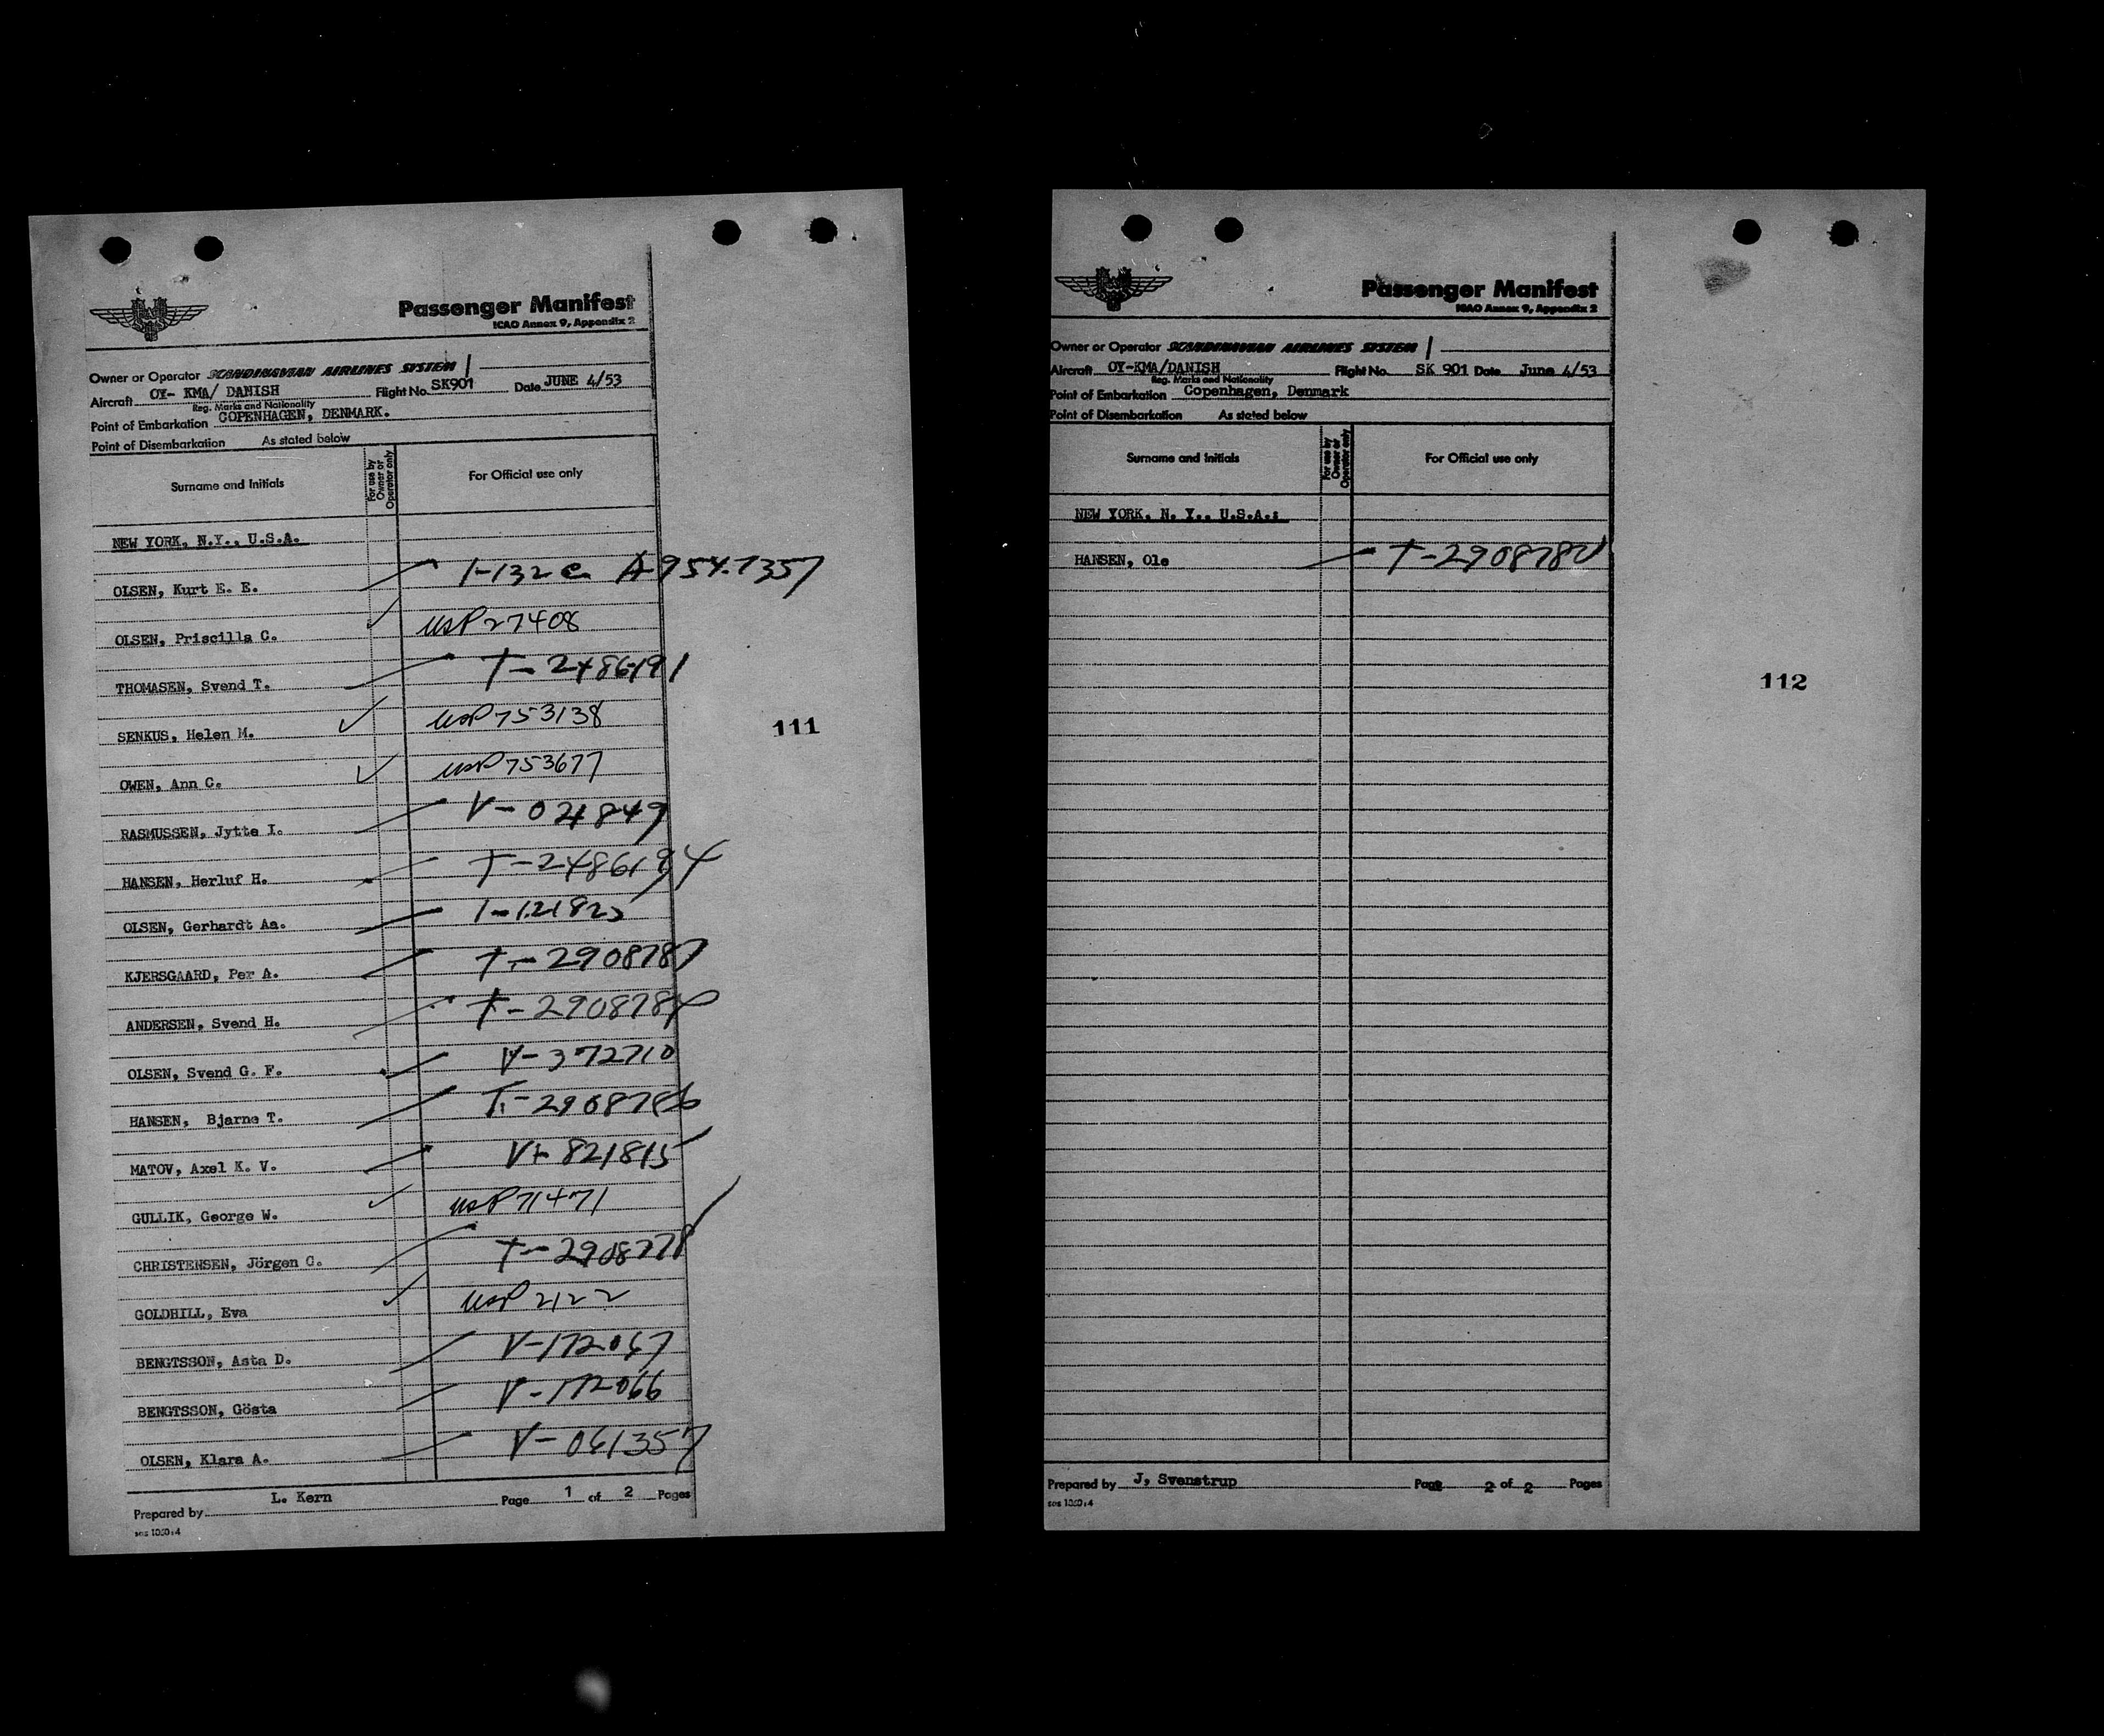 Passenger Manifest
ICAO Annex 9, Appendix 2
Owner or Operator SCANDINAVIAN AIRLINES SYSTEM
Aircraft OY- KMA/ DANISH Flight No. SK901 Date JUNE 4/53
Reg. Marks and Nationality
Point of Embarkation COPENHAGEN, DENMARK.
Point of Disembarkation As stated below
Surname and Initials For use by Owner or Operator only For Official use only
NEW YORK, N.Y., U.S.A.
OLSEN, Kurt E. E. 1-132 e. A-954-7357
OLSEN, Priscilla C. USP 27408
THOMASEN, Svend T. T-2486191
SENKUS, Helen M. USP 753138
OWEN, Ann C. USP 753677
RASMUSSEN, Jytte I. V-021849
HANSEN, Herluf H. T-2486194
OLSEN, Gerhardt Aa. 1-121825
KJERSGAARD, Per A. T-2908787
ANDERSEN, Svend H. T-2908784
OLSEN, Svend G. F. V-372710
HANSEN, Bjarne T. T-2908786
MATOV, Axel K. V. V-821815
GULLIK, George W. USP 71471
CHRISTENSEN, Jörgen C. T-2908778
GOLDHILL, Eva USP 2122
BENGTSSON, Asta D. V-172067
BENGTSSON, Gösta V-172066
OLSEN, Klara A. V-061357
Prepared by L. Kern Page 1 of 2 Pages
111
Passenger Manifest
ICAO Annex 9, Appendix 2
Owner or Operator SCANDINAVIAN AIRLINES SYSTEM
Aircraft OY-KMA/DANISH Flight No. SK 901 Date June 4/53
Reg. Marks and Nationality
Point of Embarkation Copenhagen, Denmark
Point of Disembarkation As stated below
Surname and Initials For use by Owner or Operator only For Official use only
NEW YORK, N. Y., U.S.A.:
HANSEN, Ole T-2908780
Prepared by J, Svenstrup Page 2 of 2 Pages
112